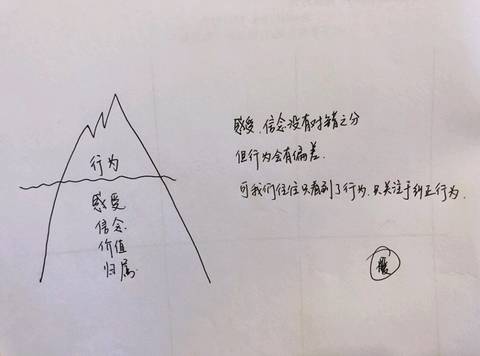 行为
感受
信念
价值
归属
感受、信念没有对错之分
但行为会有偏差.
可我们往往只看到了行为.只关注于纠正行为.